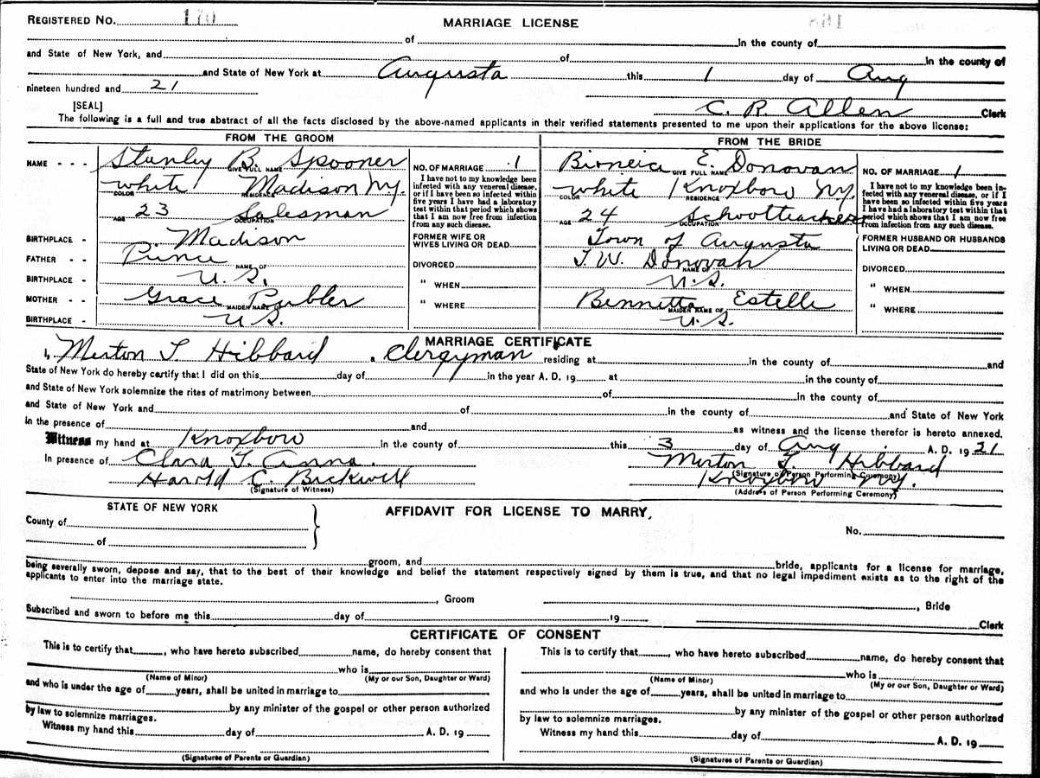 REGISTERED No. 170
MARRIAGE LICENSE
of In the county of
and State of New York, and of In the county of
and State of New York at Augusta this 1 day of Aug
nineteen hundred and 21
[SEAL] C. R. Allen Clerk
The following is a full and true abstract of all the facts disclosed by the above-named applicants in their verified statements presented to me upon their applications for the above license:
FROM THE GROOM
NAME Stanley B. Spooner
GIVE FULL NAME
white Madison N.Y.
COLOR RESIDENCE
AGE 23 Salesman
OCCUPATION
BIRTHPLACE Madison
FATHER Prince
NAME OF
BIRTHPLACE U.S.
MOTHER Grace
MAIDEN NAME OF
BIRTHPLACE U.S.
NO. OF MARRIAGE 1
I have not to my knowledge been
infected with any venereal disease,
or if I have been so infected within
five years I have had a laboratory
test within that period which shows
that I am now free from infection
from any such disease.
FORMER WIFE OR
WIVES LIVING OR DEAD
DIVORCED
" WHEN
" WHERE
FROM THE BRIDE
E. Donovan
GIVE FULL NAME
white Knoxboro N.Y.
COLOR RESIDENCE
AGE 24 Schoolteacher
OCCUPATION
Town of Augusta
T. W. Donovan
NAME OF
U.S.
Bennetta Estelle
MAIDEN NAME OF
U.S.
NO. OF MARRIAGE 1
I have not to my knowledge been in-
fected with any venereal disease, or if I
have been so infected within five years
I have had a laboratory test within that
period which shows that I am now free
from infection from any such disease.
FORMER HUSBAND OR HUSBANDS
LIVING OR DEAD
DIVORCED
" WHEN
" WHERE
MARRIAGE CERTIFICATE
I, Merton T Hibbard, a Clergyman residing at in the county of and
State of New York do hereby certify that I did on this day of in the year A. D. 19 at in the county of
and State of New York solemnize the rites of matrimony between of in the county of
and State of New York and of in the county of and State of New York
in the presence of and as witness and the license therefor is hereto annexed.
Witness my hand at Knoxboro in the county of this 3 day of Aug A. D. 1921
In presence of Clara T. Merton T. Hibbard
(Signature of Person Performing Ceremony)
Harold C. Bickwell Knoxboro N.Y.
(Signature of Witness) (Address of Person Performing Ceremony)
STATE OF NEW YORK
County of
of
AFFIDAVIT FOR LICENSE TO MARRY,
No.
groom, and bride, applicants for a license for marriage,
being severally sworn, depose and say, that to the best of their knowledge and belief the statement respectively signed by them is true, and that no legal impediment exists as to the right of the
applicants to enter into the marriage state.
, Groom , Bride
Subscribed and sworn to before me this day of 19 Clerk
CERTIFICATE OF CONSENT
This is to certify that , who have hereto subscribed name, do hereby consent that
who is
(Name of Minor) (My or our Son, Daughter or Ward)
and who is under the age of years, shall be united in marriage to
by any minister of the gospel or other person authorized
by law to solemnize marriages.
Witness my hand this day of A. D. 19
(Signatures of Parents or Guardian)
This is to certify that , who have hereto subscribed name, do hereby consent that
who is
(Name of Minor) (My or our Son, Daughter or Ward)
and who is under the age of years, shall be united in marriage to
by any minister of the gospel or other person authorized
by law to solemnize marriages.
Witness my hand this day of A. D. 19
(Signatures of Parents or Guardian)